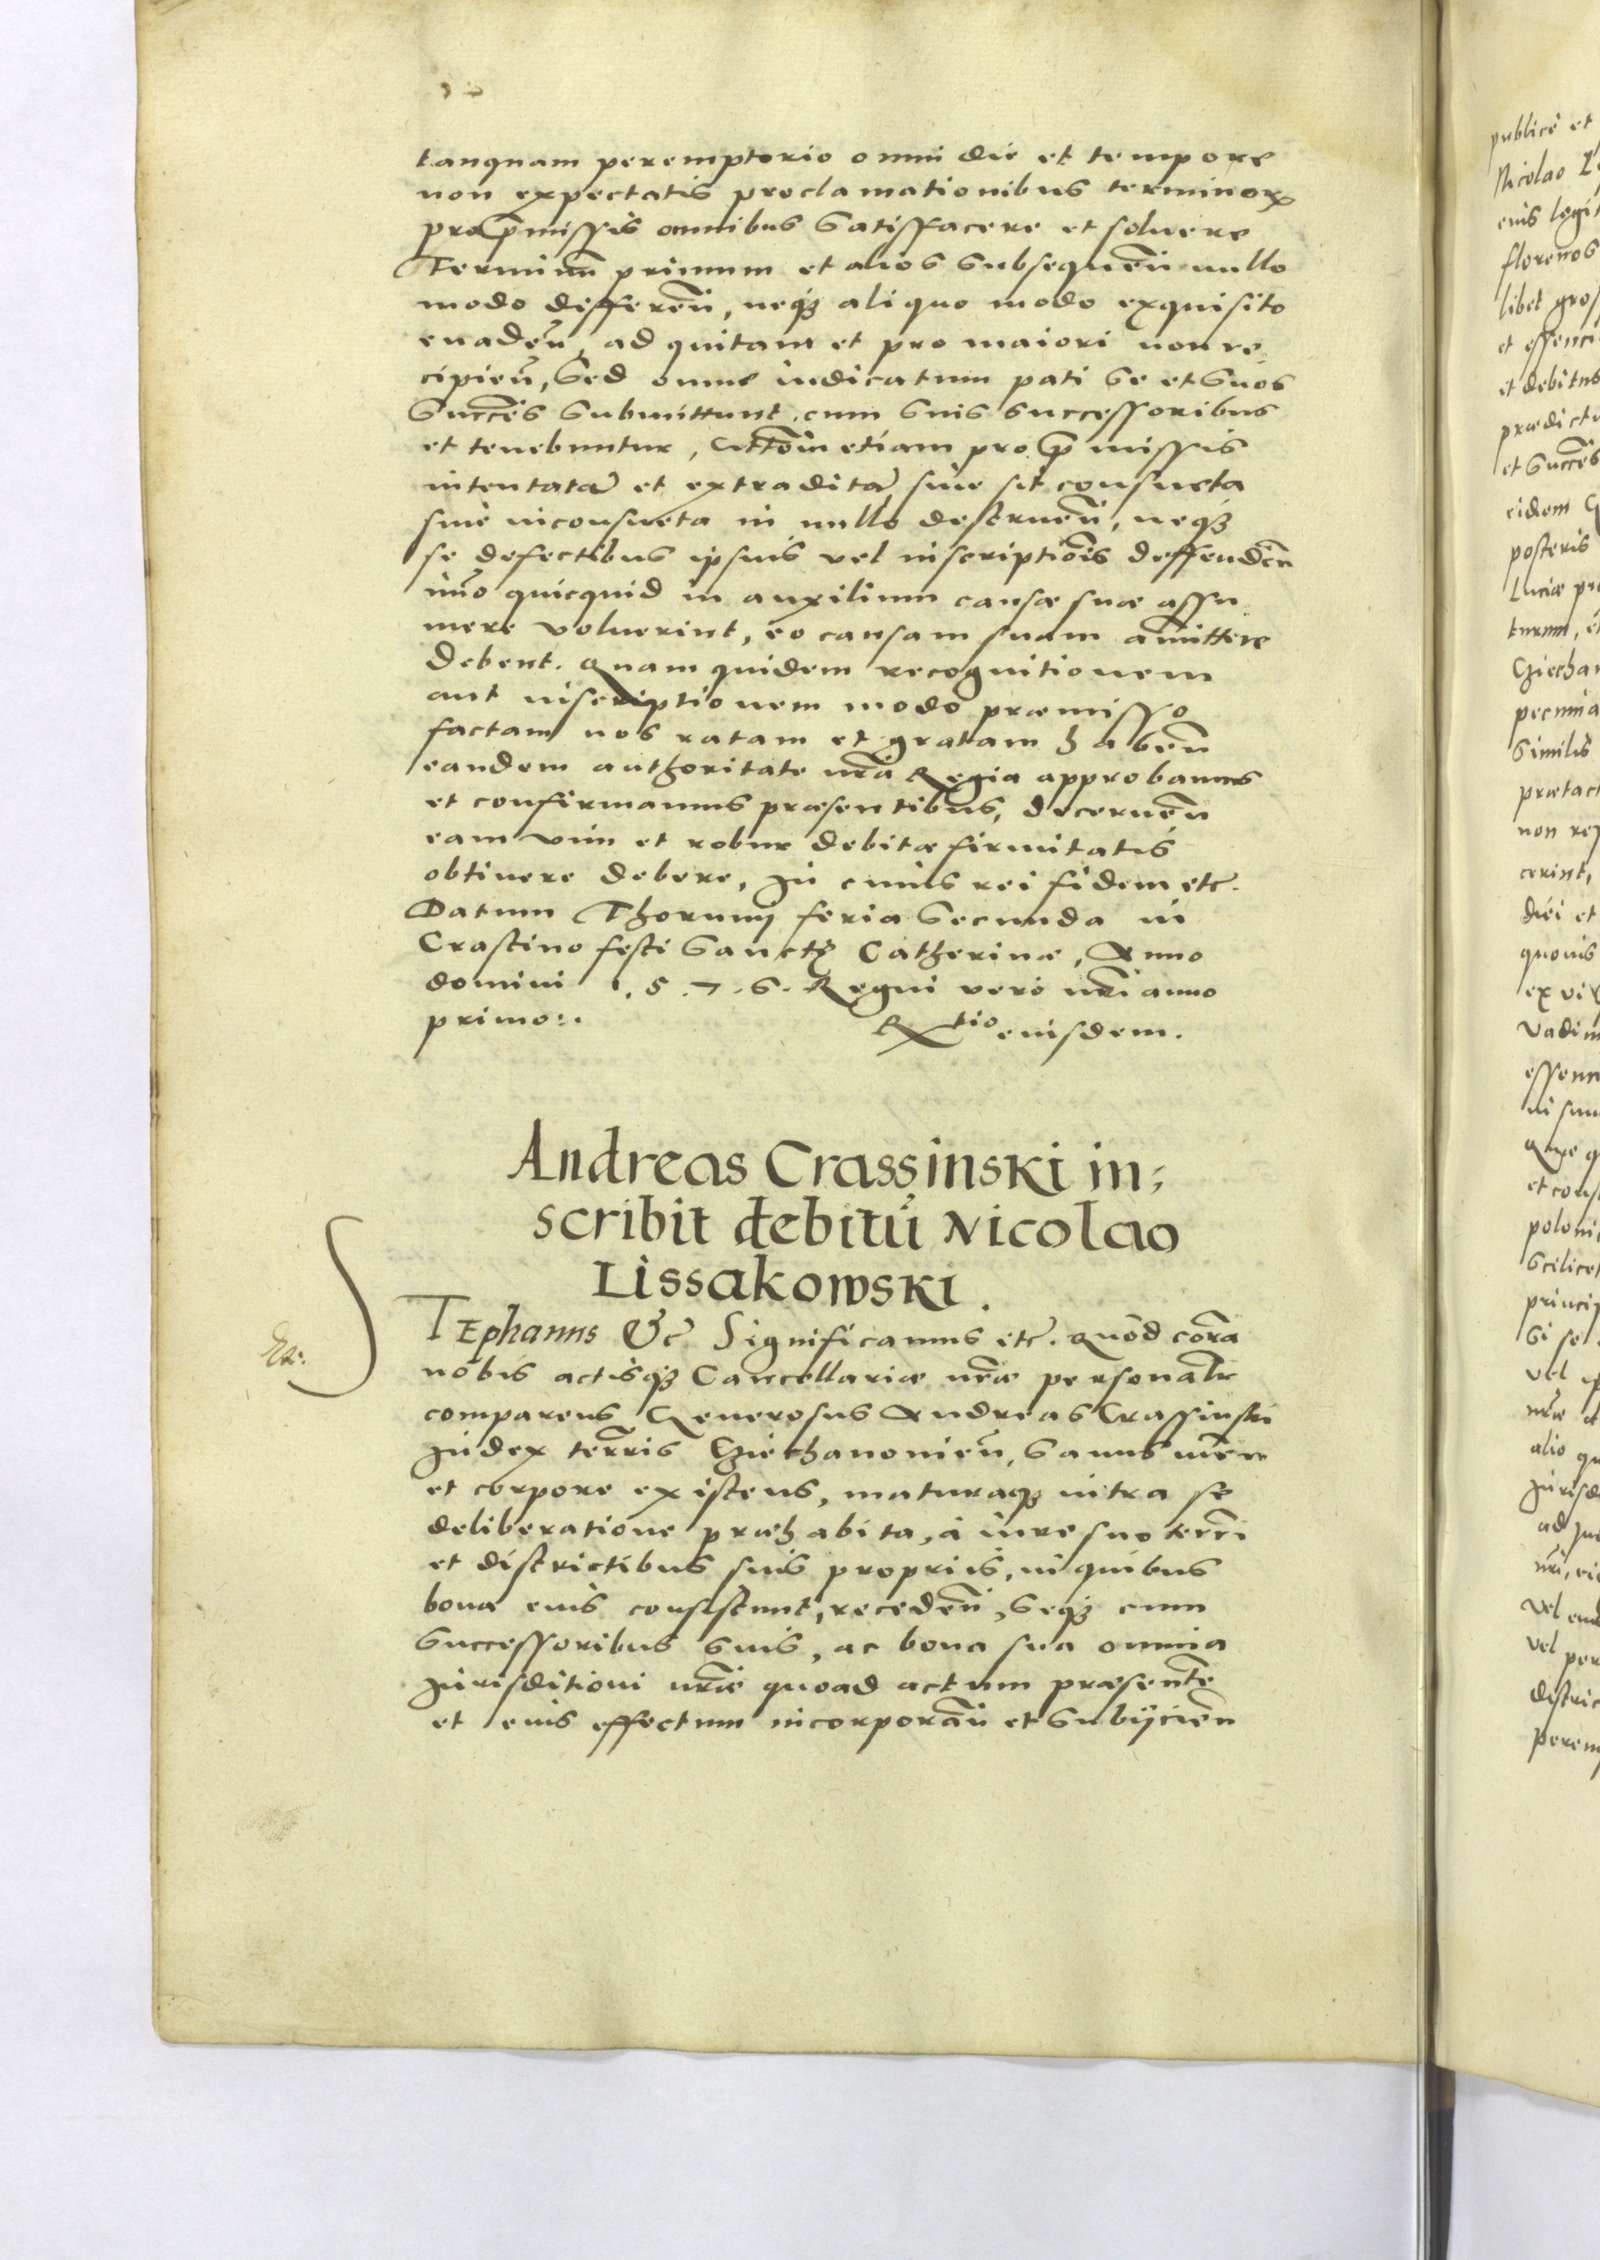 tanquam peremptorio omni die et tempore
non expectatis proclamationibus terminorꝝ
pro p̄missis omnibus satisfacere et soluere
Terminū primum et alios subsequen̄ nullo
modo differen̄, neqꝫ aliquo modo exquisito
euaden̄, ad quitam et pro maiori non re
cipien̄, sed omne iudicatum pati se et suos
Succes̄ submittunt cum suis successoribus
et tenebuntur, Citt̄om etiam pro p̄missis
intentatā et extraditā, siue sit consueta
siuè inconsueta in nullo destruen̄, neqꝫ
se defectibus ipsius vel inscriptiōis deffendeñ
imo quicquid in auxilium causæ suæ assu
mere voluerint, eo causam suam amittere
debent. Quam quidem recognitionem
aut inscriptionem modo præmisso
factam nos ratam et gratam haben̄
eandem authoritate nr̄a Regia approbamus
et confirmamus præsentibus, decernen̄
eam vim et robur debitæ firmitatis
obtinere debere, In cuius rei fidem etc.
Datum Thorunij feria secunda in
Crastino festi Sanctę Catherinæ, Anno
domini 1.5.7.6. Regni verò nr̄i anno
primo:.
Rtio eiusdem.
Andreas Crassinski in;
scribit debitū Nicolao
Lissakowski.
Ex:
STEphanus &c Significamus etc. Quòd corā
nobis actisqꝫ Cancellariæ nr̄æ personalr̄
comparens Generosus Andreas Crassinski
Iudex terris̄ Cziechanouien̄, sanus mēte
et corpore existens, maturaqꝫ intra se
deliberatione præhabita, à iure suo terr̄i
et districtibus suis proprijs, in quibus
bona eius consistunt, receden̄, seqꝫ cum
successoribus suis, ac bona sua omnia
Iurisditioni nr̄æ quoad actum præsente̅
et eius effectum incorporan̄ et subijcien̄
publicè et
Nicolao
eius legit
florenos
libet gros
et
et debitus
prædict
et Succes̄
eidem
posteris
Luciæ pr
turum, et
Cziechan
pecunia
similis
prætact
non
cerint,
diei et
quouis
ex vi
Vadium
in sum
Quæ q
et cons
poloni
scilicet
princip
si se
vel ip
nr̄æ
alio qu
Iurisd
ad
nr̄i,
vel
vel per
distric
perem